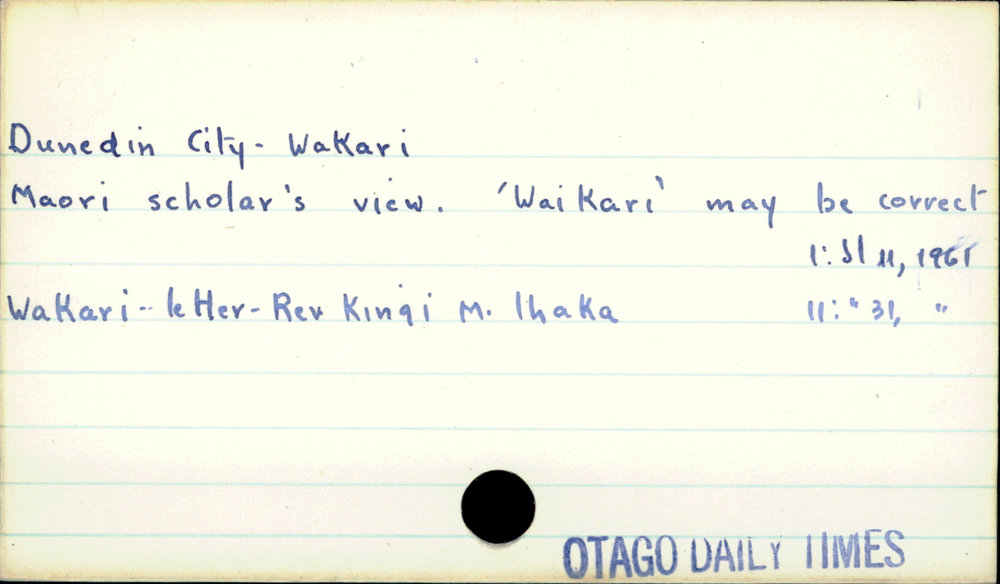 Dunedin City - Wakari
Maori scholar's view. 'Waikari' may be correct
1: Jl 11, 1961
Wakari -- letter - Rev Kingi M. Ihaka
11: " 31, "
OTAGO DAILY TIMES